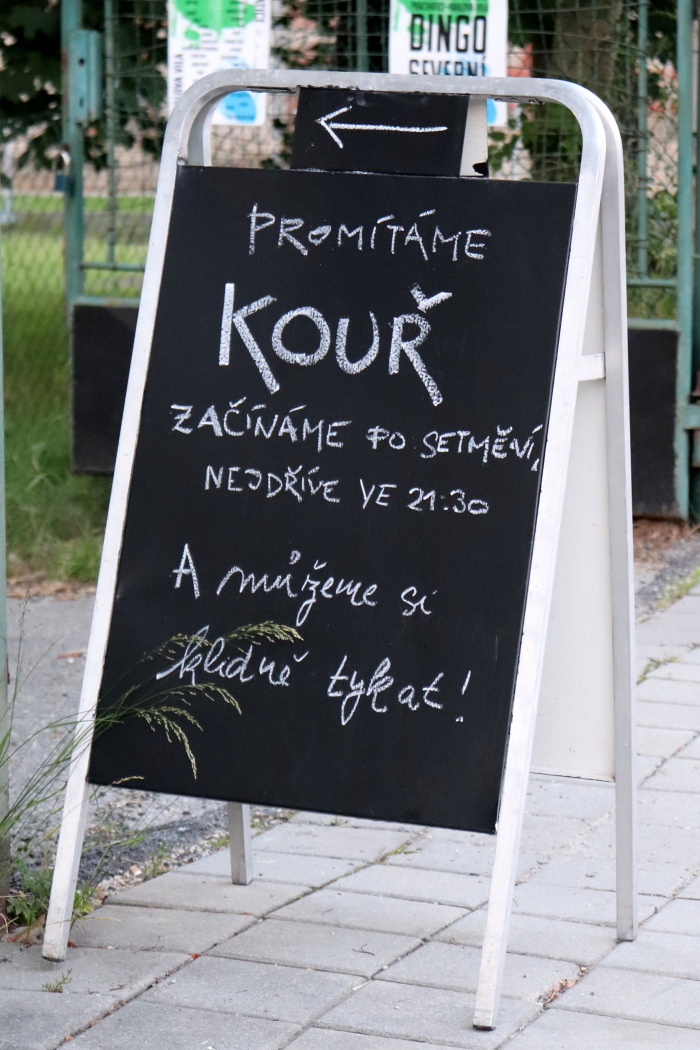 DINGO
SEVERNÍ
PROMÍTÁME
KOUŘ
ZAČÍNÁME PO SETMĚNÍ,
NEJDŘÍVE VE 21:30
A můžeme si
klidně tykat!